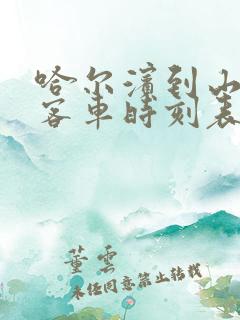 哈尔滨到山
客车时刻表
董雲
未经同意禁止转载